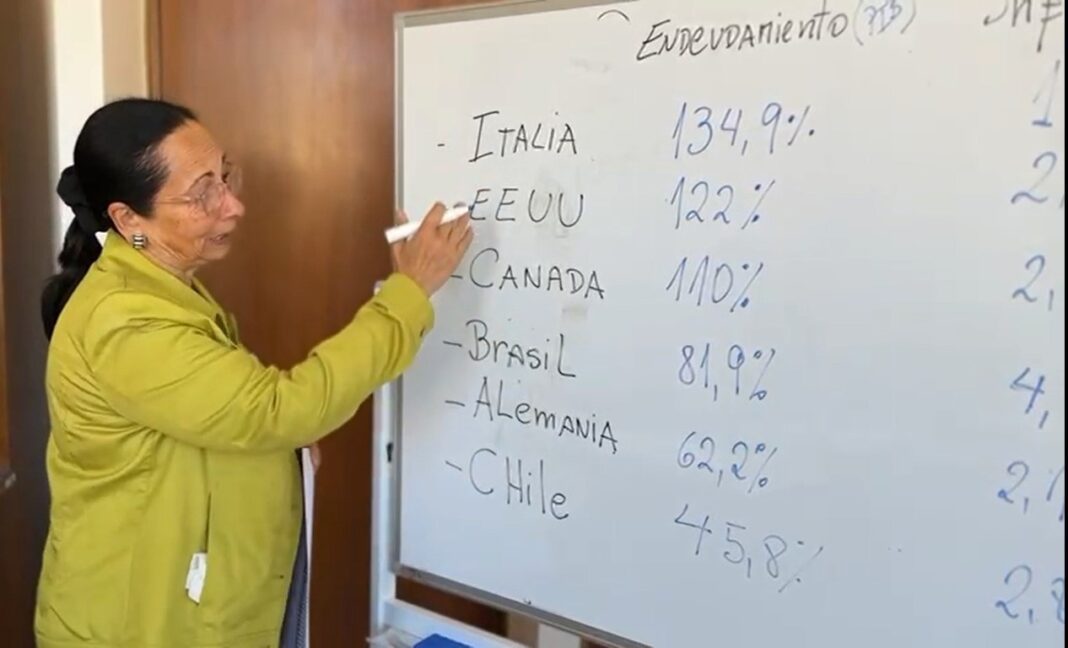 Endeudamiento (PIB) Inf
- ITALIA 134,9% 1
- EEUU 122% 2,
- CANADA 110% 2,
- Brasil 81,9% 4,
- Alemania 62,2% 2,
- CHile 45,8% 2,8